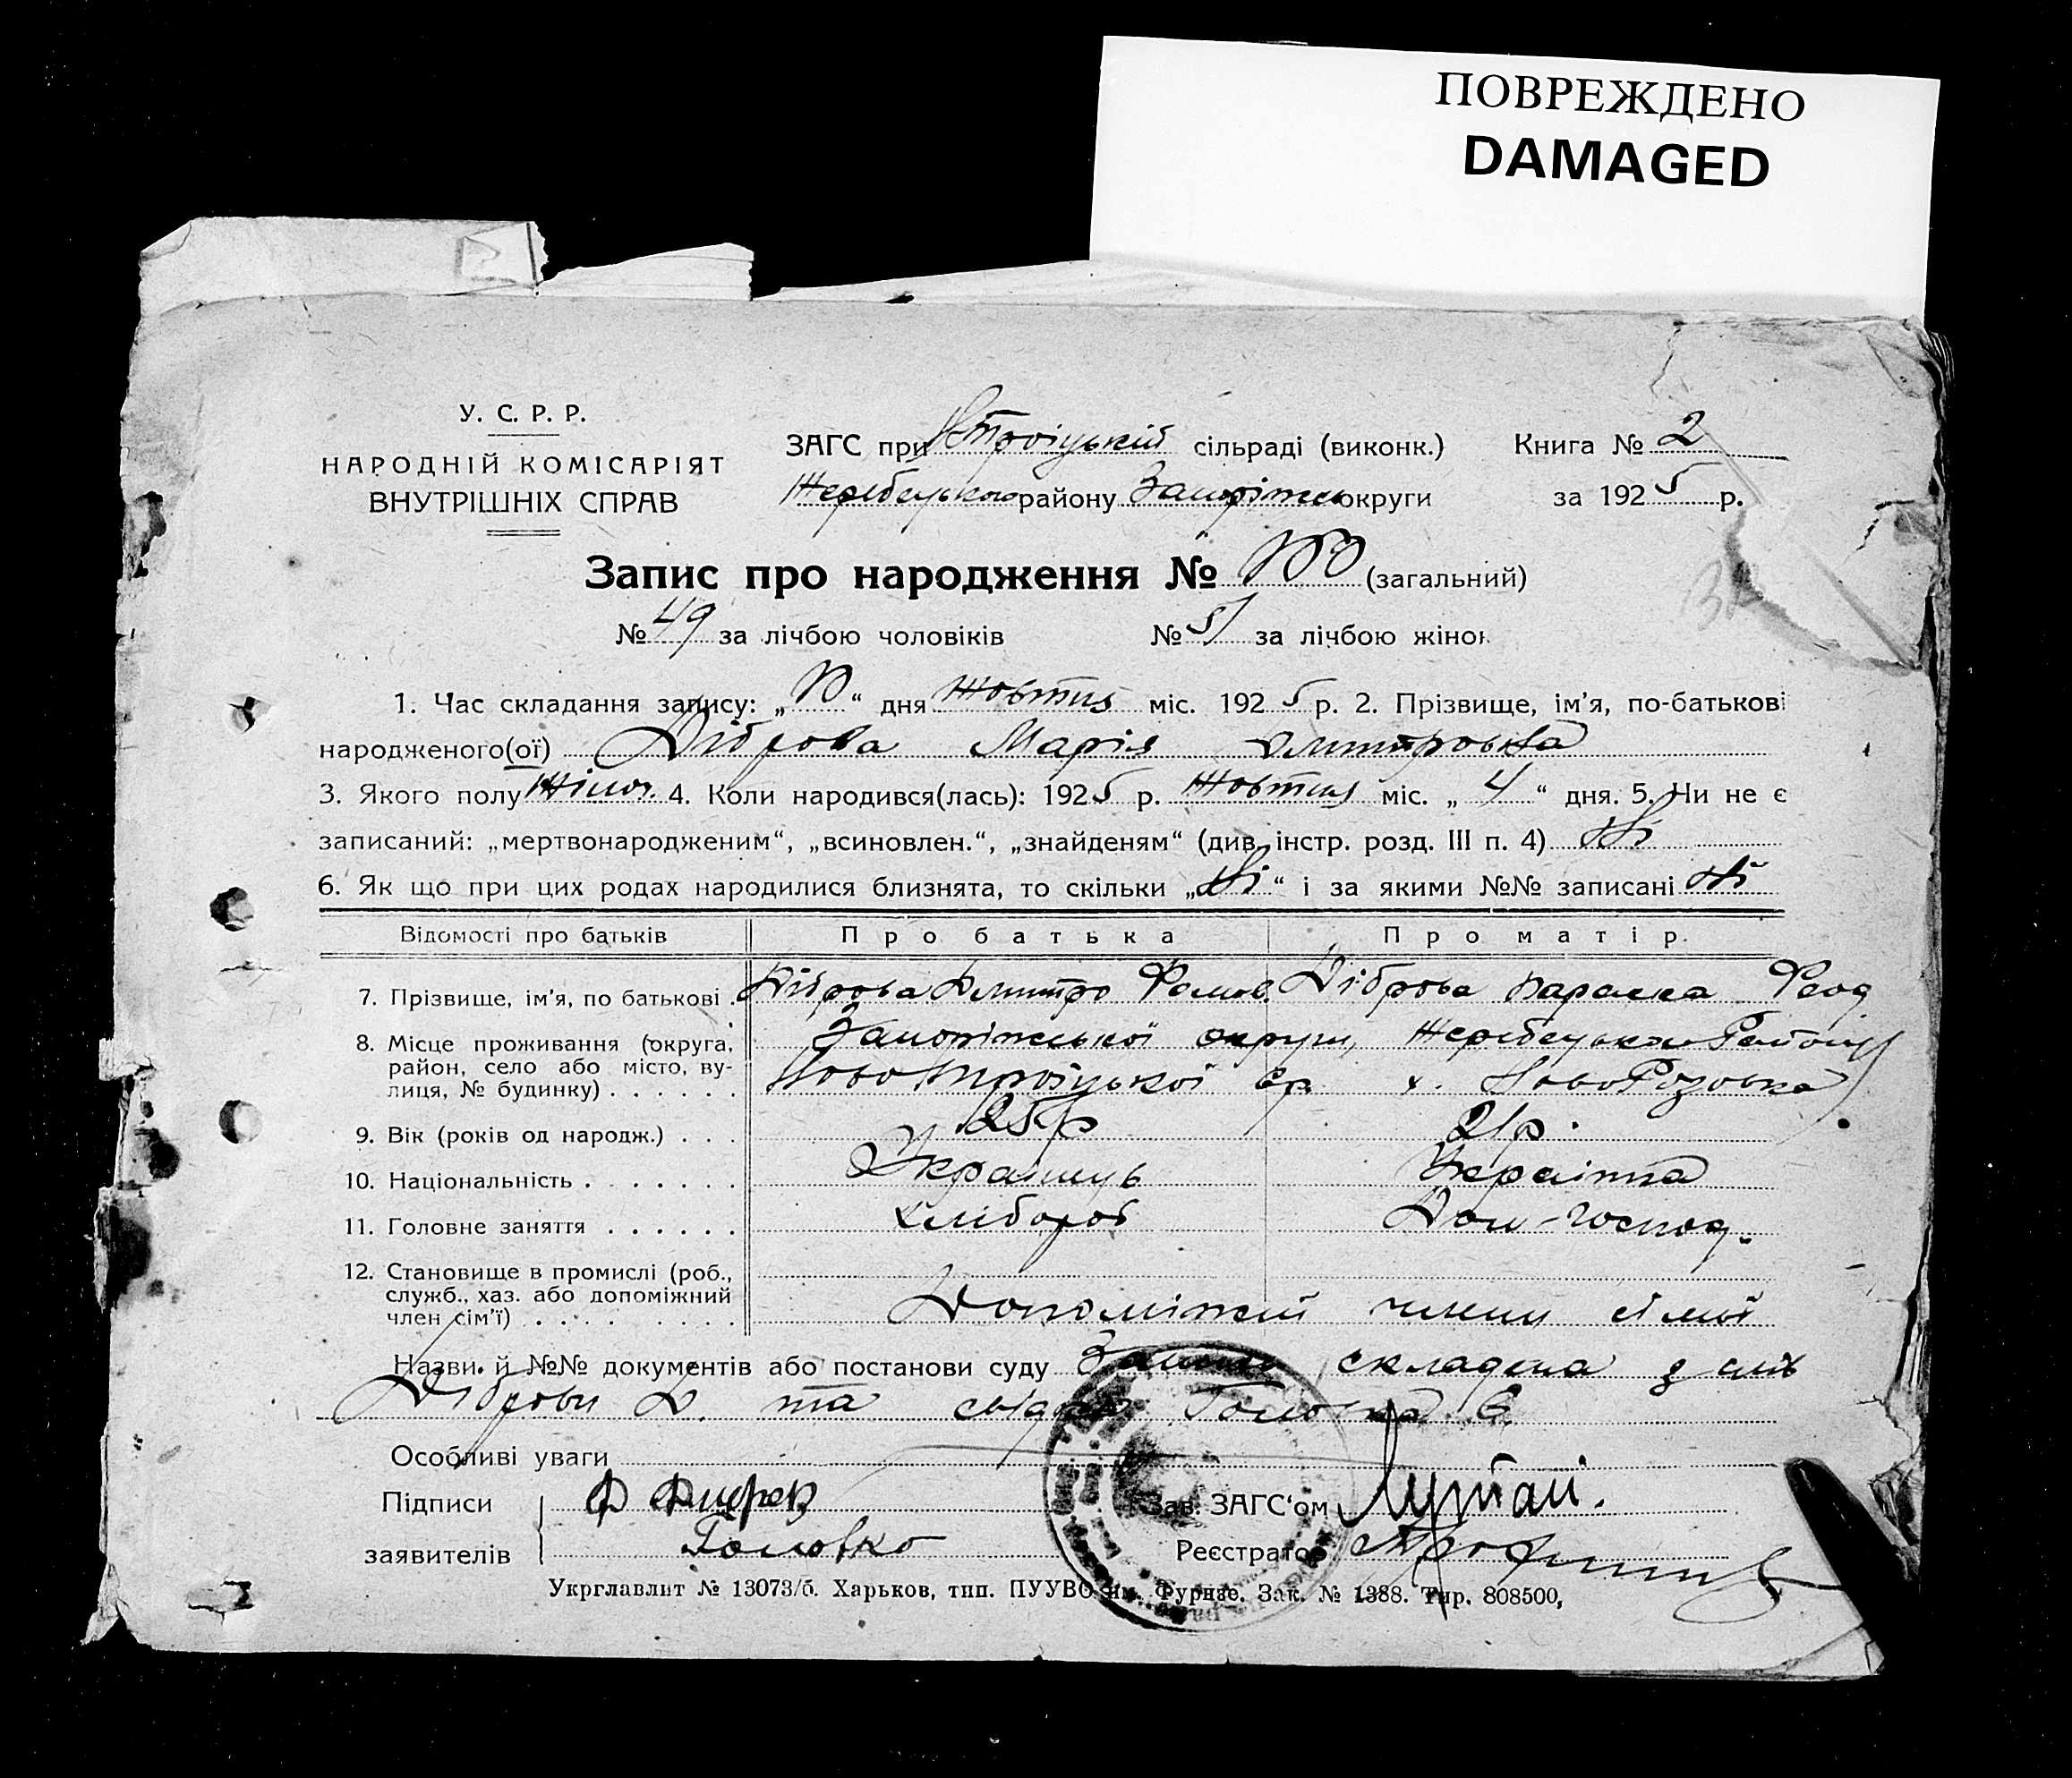 ПОВРЕЖДЕНО
DAMAGED
У. С. Р. Р.
НАРОДНІЙ КОМІСАРІЯТ
ВНУТРІШНІХ СПРАВ
ЗАГС при Н Троіцькій сільраді (виконк.)
Жеребецького району Запоріжськ округи
Книга № 2
за 1925 р.
Запис про народження № 100 (загальний)
№ 49 за лічбою чоловіків № 51 за лічбою жінок
1. Час складання запису: „10“ дня Жовтня міс. 1925 р. 2. Прізвище, ім'я, по-батькові
народженого(ої) Діброва Марія Дмитровна
3. Якого полу Жіноч. 4. Коли народився(лась): 1925 р. Жовтня міс. „4“ дня. 5. Чи не є
записаний: „мертвонародженим“, „всиновлен.“, „знайденям“ (див. інстр. розд. III п. 4) Ні
6. Як що при цих родах народилися близнята, то скільки „Ні“ і за якими №№ записані Ні
Відомості про батьків Про батька Про матір.
7. Прізвище, ім'я, по батькові . Діброва Дмитро Фомов. Діброва Параска Феод
8. Місце проживання (округа, Запоріжської округи, Жеребецького Району
район, село або місто, ву-
лиця, № будинку) . . . . . . НовоТроїцької Ср. х. НовоРозовка
9. Вік (років од народж.) . . . 25 р 21 р.
10. Національність . . . . . . . Українець Українка
11. Головне заняття . . . . . . Хлібороб Дом-господ.
12. Становище в промислі (роб.,
служб., хаз. або допоміжний
член сім'ї) . . . . . . . . . Допоміжні члени сімьї
Назви й №№ документів або постанови суду Запись складена з слів
Діброви Д. та свідка Головка Є.
Особливі уваги
Підписи
заявителів Головко
Зав. ЗАГС'ом Лутай.
Реєстратор
Укрглавлит № 13073/б. Харьков, тип. ПУУВО им. Фрунзе. Зак. № 1388. Тир. 808500,